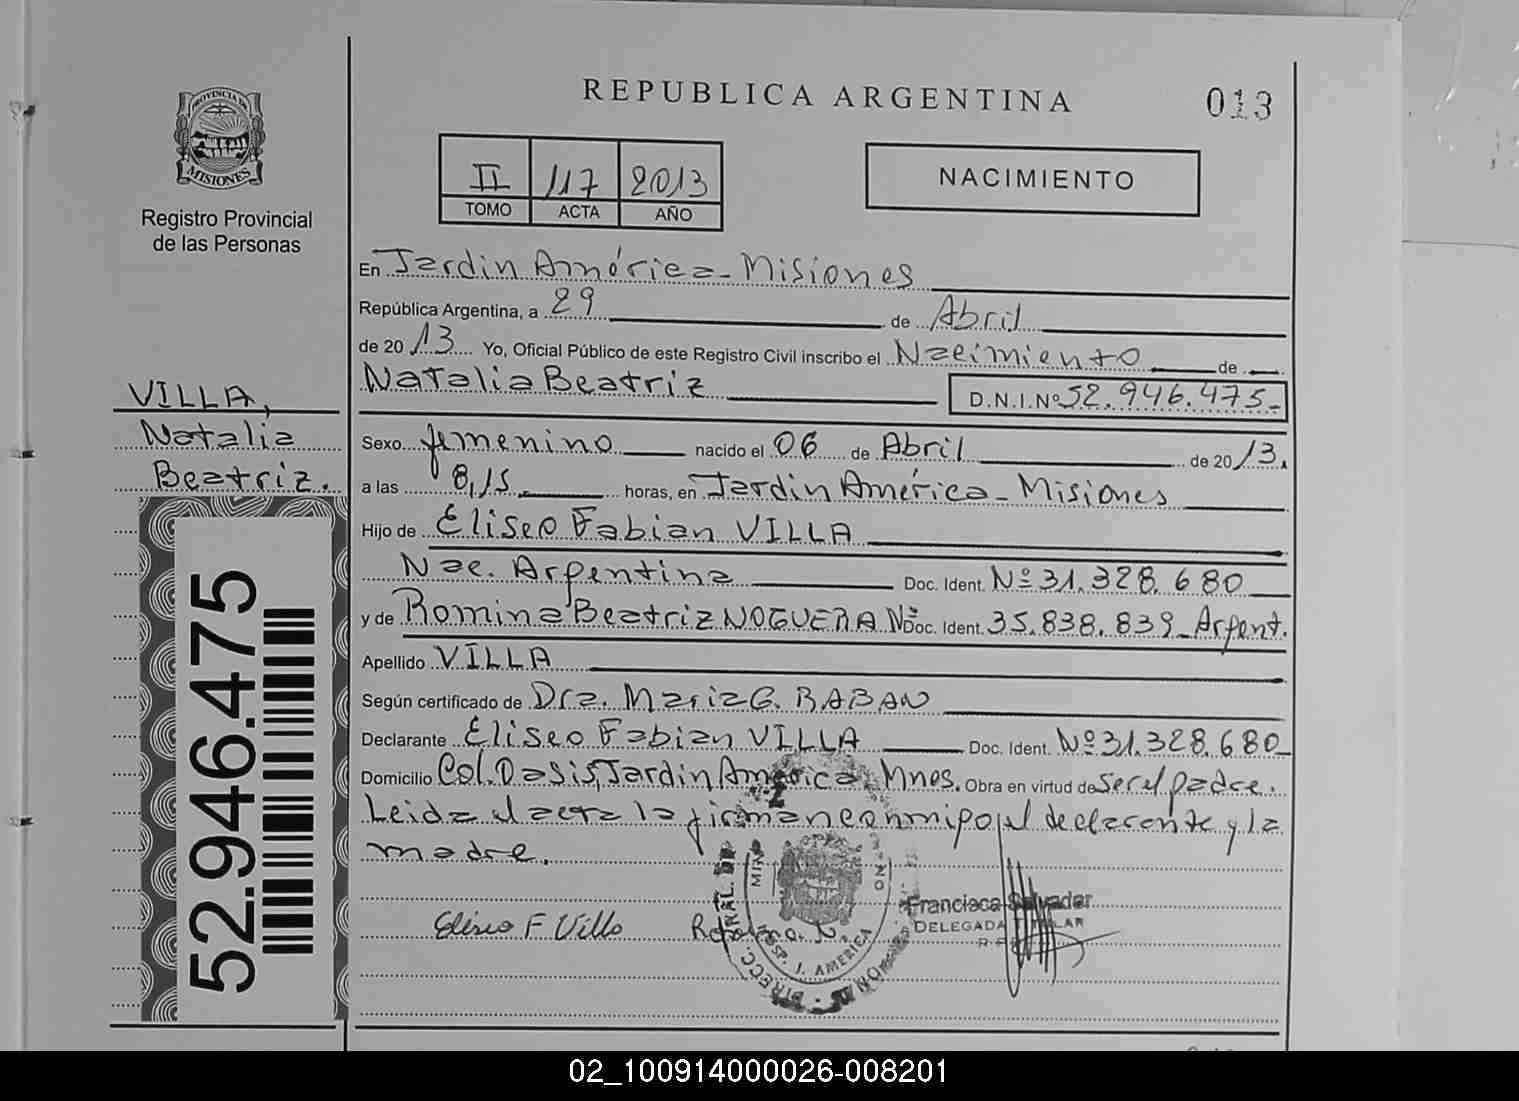 REPUBLICA ARGENTINA
013
PROVINCIA DE
MISIONES
Registro Provincial
de las Personas
II 117 2013
TOMO ACTA AÑO
NACIMIENTO
En Jardin América - Misiones
República Argentina, a 29 de Abril
de 20 13 Yo, Oficial Público de este Registro Civil inscribo el Nacimiento de
Natalia Beatriz D.N.I.Nº 52.946.475-
VILLA,
Natalia
Beatriz.
Sexo femenino nacido el 06 de Abril de 20 13.
a las 8,15 horas, en Jardin América - Misiones
Hijo de Eliseo Fabian VILLA
Nac. Argentina Doc. Ident. Nº 31.328.680
y de Romina Beatriz NOGUERA Nº Doc. Ident. 35.838.839 - Argent.
Apellido VILLA
Según certificado de Dra. Maria G. RABAN
Declarante Eliseo Fabian VILLA Doc. Ident. Nº 31.328.680-
Domicilio Col. Oasis, Jardin América Mnes. Obra en virtud de ser el padre.
Leida el acta la firman conmigo, el declarante y la
madre.
52.946.475
Eliseo F Villa
J. AMERICA
Francisca Salvador
DELEGADA TITULAR
02_100914000026-008201